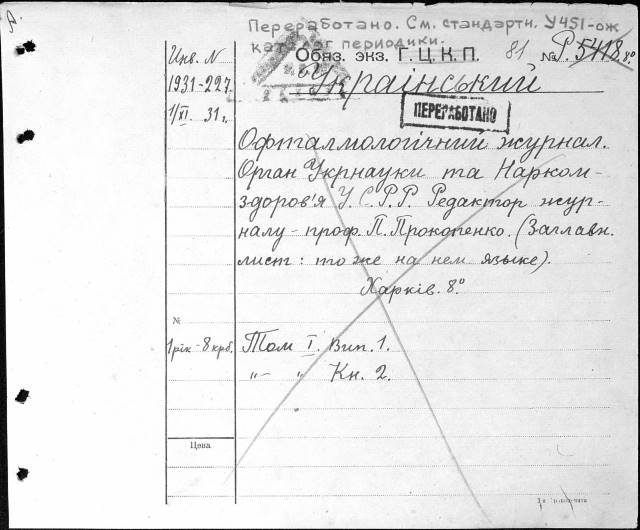 Переработано. См. стандартн. У451-ож
каталог периодики.
Инв. N Обяз. экз. Г. Ц. К. П. 81 № Р. 5418.
1931-227. Український
1/XI. 31 г.
ПЕРЕРАБОТАНО
Офталмологічний журнал.
Орган Укрнауки та Нарком-
здоров'я У.С.Р.Р. Редактор жур-
налу - проф. П. Прокопенко. (Заглавн.
лист: то же на нем языке).
Харків. 8°
№
1 рік - 8 крб. Том I. Вип. 1.
"- " Кн. 2.
Цена